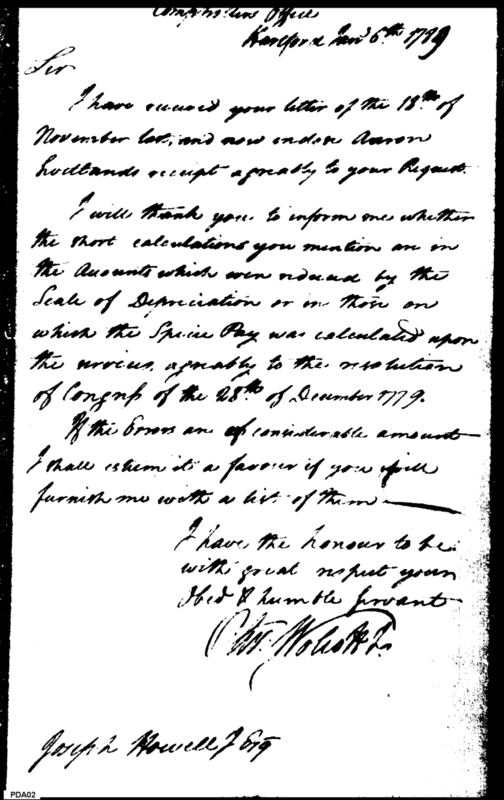 Comptrollers Office
Hartford Jany 6th 1789
Sir
I have received your letter of the 18th of
November last, and now endose Aaron
receipt agreably to your Request.
I will thank you to inform me whether
the short calculations you mention are in
the Accounts which were reduced by the
Scale of Depreciation or in those on
which the Specie Pay was calculated upon
the agreably to the resolution
of Congress of the 28th of December 1779.
If the Errors are of considerable amount
I shall esteem it a favour if you will
furnish me with a list of them
I have the honour to be
with great respect your
Obed & humble servant
Olivr. Wolcott Jr.
Joseph Howell J Esq
PDA02